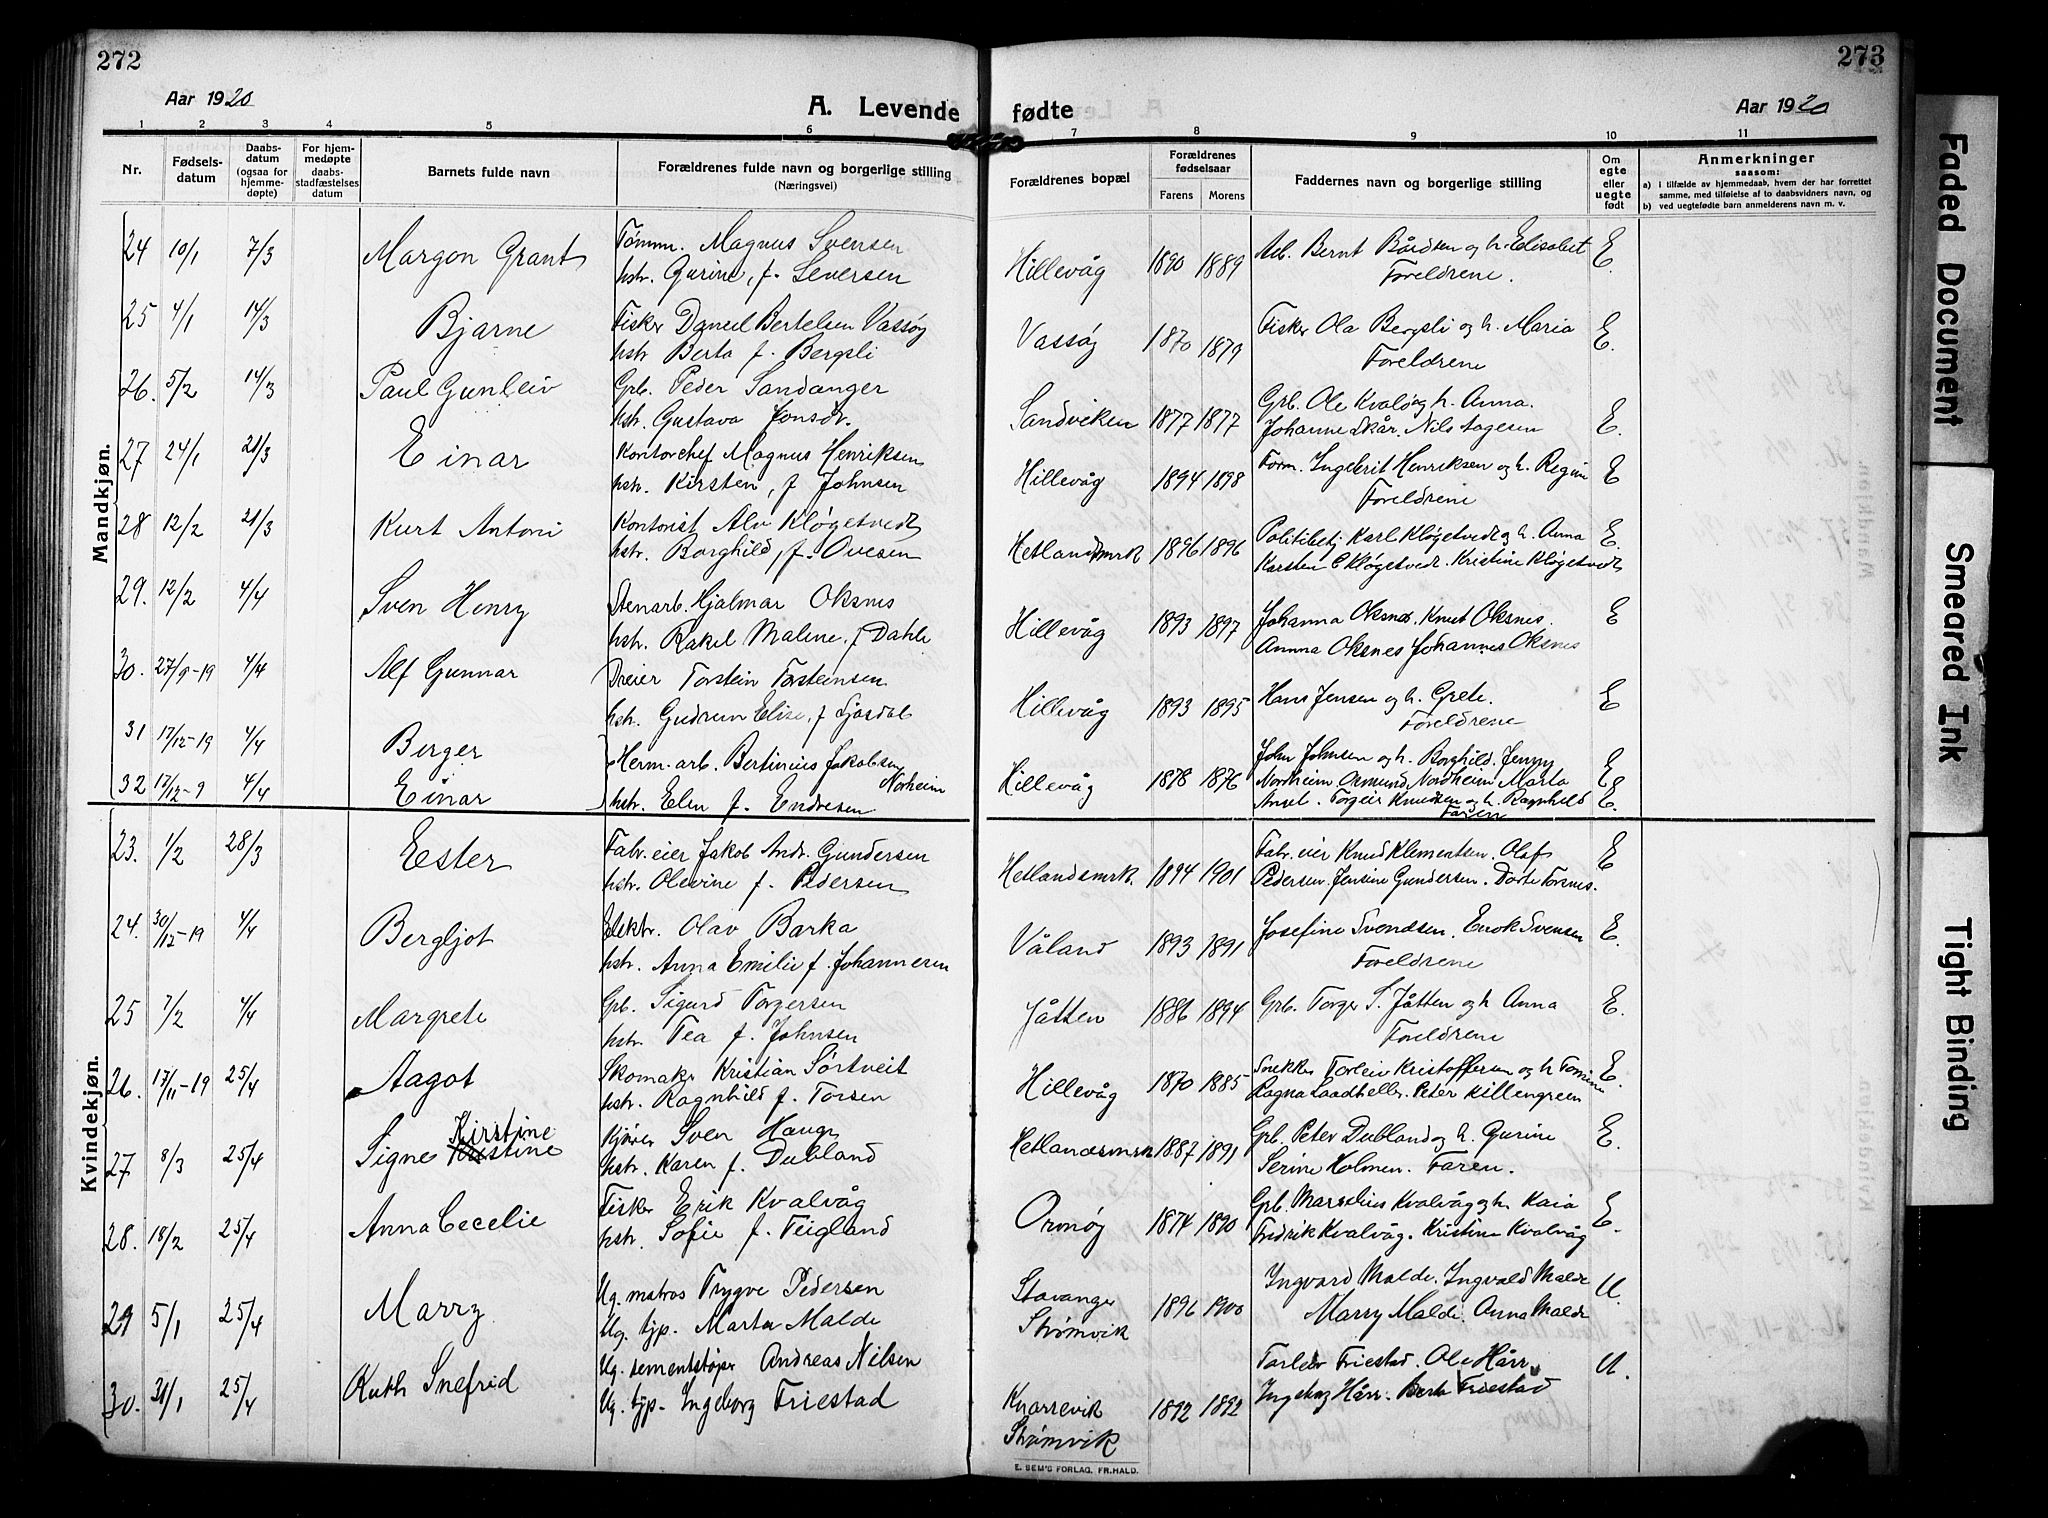 272
273
Aar 1920
A. Levende fødte
Aar 1920
1 2 3 4 5 6 7 8 9 10 11
Nr.
Fødsels-datum
Daabs-datum (ogsaa for hjemme-døpte)
For hjem-medøpte daabs-stadfæstelses datum
Barnets fulde navn
Forældrenes fulde navn og borgerlige stilling
(Næringsvei)
Forældrenes bopæl
Forældrenes fødselsaar
Farens Morens
Faddernes navn og borgerlige stilling
Om egte eller uegte født
Anmerkninger
saasom:
a) i tilfælde av hjemmedaab, hvem der har forrettet samme, med tilføielse af to daabsvidners navn, og
b) ved uegtefødte barn anmelderens navn m. v.
Mandkjøn.
24 10/1 7/3 Margon Grant Tømm. Magnus Svensen Hillevåg 1890 1889 Arb. Bernt Bårdsen og h. Elisabet E.
hstr. Gurine, f. Seversen Foreldrene.
25 4/1 14/3 Bjarne Fisker Daneil Bertelsen Vassøy Vassøy 1870 1879 Fisker Ola Bergsli og h. Maria E.
hstr Berta f. Bergsli Foreldrene
26. 5/2 14/3 Paul Gunleiv Grb. Peder Sandanger Sandviken 1877 1877 Grb. Ole Kvalø og h. Anna.
hstr. Gustava Jonsdr. Johanne Skår. Nils Aagesen E.
27 24/1 21/3 Einar Kontorchef Magnus Henriksen Hillevåg 1894 1898 Form. Ingebrit Henriksen og h. Regine E
hstr. Kirsten, f Johnsen Foreldrene
28 12/2 21/3 Kurt Antoni Kontorist Alv Kløgetvedt Hetlandsmrk 1896 1896 Politibetj Karl Kløgetvedt og h. Anna E.
hstr. Borghild, f. Ovesen Karsten C Kløgetvedt. Kristine Kløgetvedt
29. 12/2 4/4 Sven Henry Stenarb. Hjalmar Oksnes Hillevåg 1893 1897 Johanna Oksnes. Knut Oksnes. E
hstr. Rakel Malene, f Dahle Annna Oksnes Johannes Oksnes
30. 27/9-19 4/4 Alf Gunnar Dreier Torstein Torsteinsen Hillevåg 1893 1895 Hans Jensen og h. Grete. E
hstr. Gudrun Elise, f Ljosdal Foreldrene
31 17/12-19 4/4 Berger Herm. arb. Bertinius Jakobsen Norheim Hillevåg 1878 1876 John Johnsen og h. Borghild. Jenny E
32 17/12-9 4/4 Einar hstr. Elen f. Endresen Norheim Ormund Nordheim. Marta
Torgeir Knudsen og h. Ragnhild E.
Faren
Kvindekjøn.
23. 1/2 28/3 Eester Fabr. eier Jakob Andr. Gundersen Hetlandsmrk. 1894 1901 Fabr. eier Knud Klementsen. Olaf E
hstr. Olevine f. Pedersen Pedersen. Jensine Gundersen. Dorte Torsnes.
24. 30/12-19 4/4 Bergljot Elektr. Olav Barka Våland 1893 1891 Josefine Svendsen. Enok Svensen E.
hstr. Anna Emilie f. Johannesen Foreldrene
25 7/2 4/4 Margrete Grb. Sigurd Torgersen Jåtten 1886 1894 Grb. Torger S. Jåtten og h Anna E.
hstr. Tea f. Johnsen Foreldrene
26. 17/11-19 25/4 Aagot Skomaker Kristian Sørtveit Hillevåg 1870 1885 Snekker Torleiv Kristoffersen og h Tomine E.
hstr. Ragnhild f. Torsen Ragna Saadheller. Peter Killengreen
27 8/3 25/4 Signe Kirstine Kjører Sven Hauge Hetlandsmrk 1887 1891 Grb. Peter Dubland og h. Gurine E.
hstr. Karen f. Dubland Serine Holmen. Faren.
28. 18/2 25/4 Anna Cecelie Fisker Erik Kvalvåg Ormøy 1874 1890 Grb. Marselius Kvalvåg og h. Kaia E.
hstr. Sofie f. Teigland Fredrik Kvalvåg. Kristine Kvalvåg
29 5/1 25/4 Marry Ug. matros Trygve Pedersen Stavanger 1896 1900 Ingvard Malde. Ingvald Malde U.
Ug. tjp. Marta Malde Strømvik Marry Malde. Anna Malde
30. 31/1 25/4 Ruth Snefrid Ug. sementstøper Andreas Nilsen Knarrevik 1892 1892 Torleiv Friestad. Ole Hårr U.
Ug. tjp. Ingeborg Friestad Strømvik Ingeborg Hårr. Berta Friestad
E. SEM'S FORLAG, FR.HALD.
Faded Document
Smeared Ink
Tight Binding